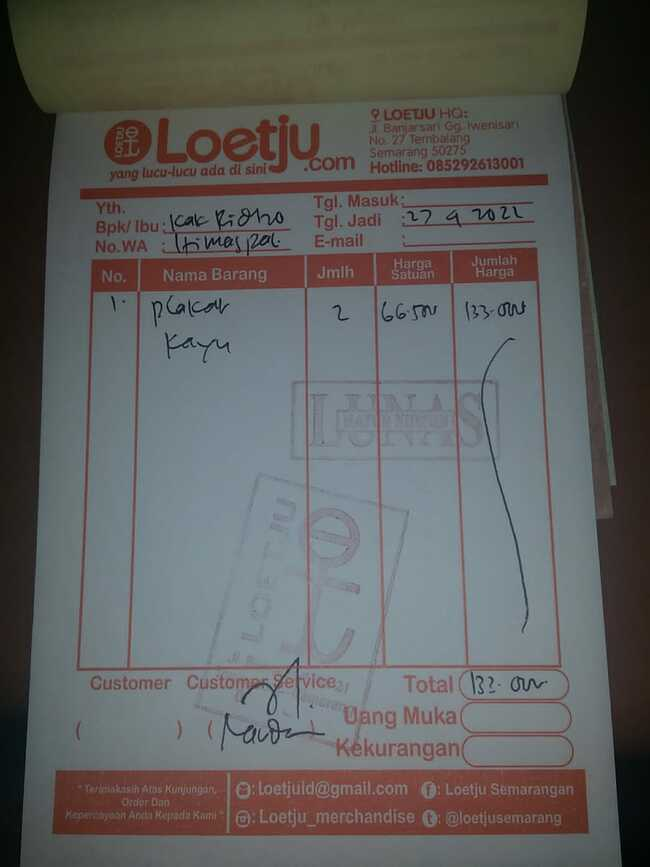 Loetju.com
yang lucu-lucu ada di sini
LOETJU HQ:
Jl. Banjarsari Gg. Iwenisari
No. 27 Tembalang
Semarang 50275
Hotline: 085292613001
Yth.
Bpk/ Ibu : Kak Ridho
No.WA : Himaspal
Tgl. Masuk:
Tgl. Jadi : 27 9 2022
E-mail :
No. Nama Barang Jmlh Harga Satuan Jumlah Harga
1. Plakat 2 66.500 133.000
Kayu
LUNAS
LOETJU
Customer Customer Service
Total 133.000
Uang Muka
Kekurangan
( ) ( )
" Terimakasih Atas Kunjungan,
Order Dan
Kepercayaan Anda Kepada Kami "
: Loetjuld@gmail.com
: Loetju Semarangan
: Loetju_merchandise
: @loetjusemarang